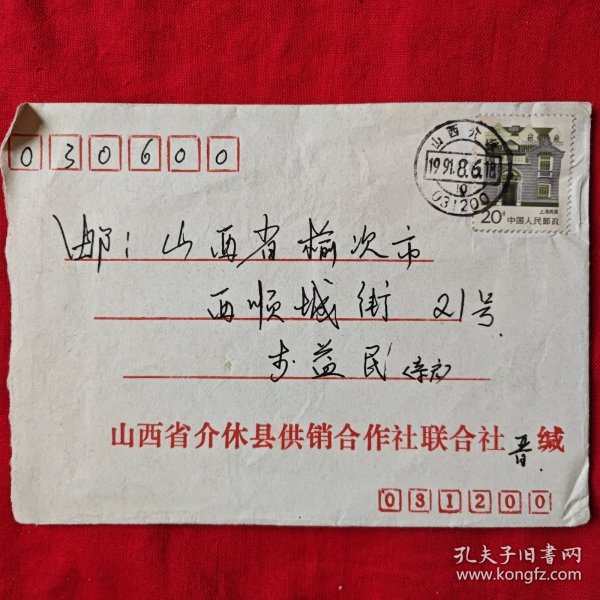 030600
山西介休
1991.8.6.18
031200
20分 中国人民邮政
上海民居
邮:山西省榆次市
西顺城街21号
益民(亲启)
山西省介休县供销合作社联合社 晋 缄
031200
孔夫子旧书网
www.kongfz.com